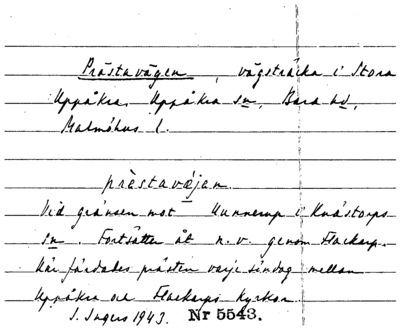 Prästavägen, vägsträcka i Stora
Uppåkra, Uppåkra sn, Bara hd,
Malmöhus l.
prästavæjen.
Vid gränsen mot Hunnerup i Knästorps
sn. Fortsätter åt n.v. genom Flackarp.
Här färdades prästen varje söndag mellan
Uppåkra och Flackarps kyrkor.
I. Ingers 1943. Nr 5543.